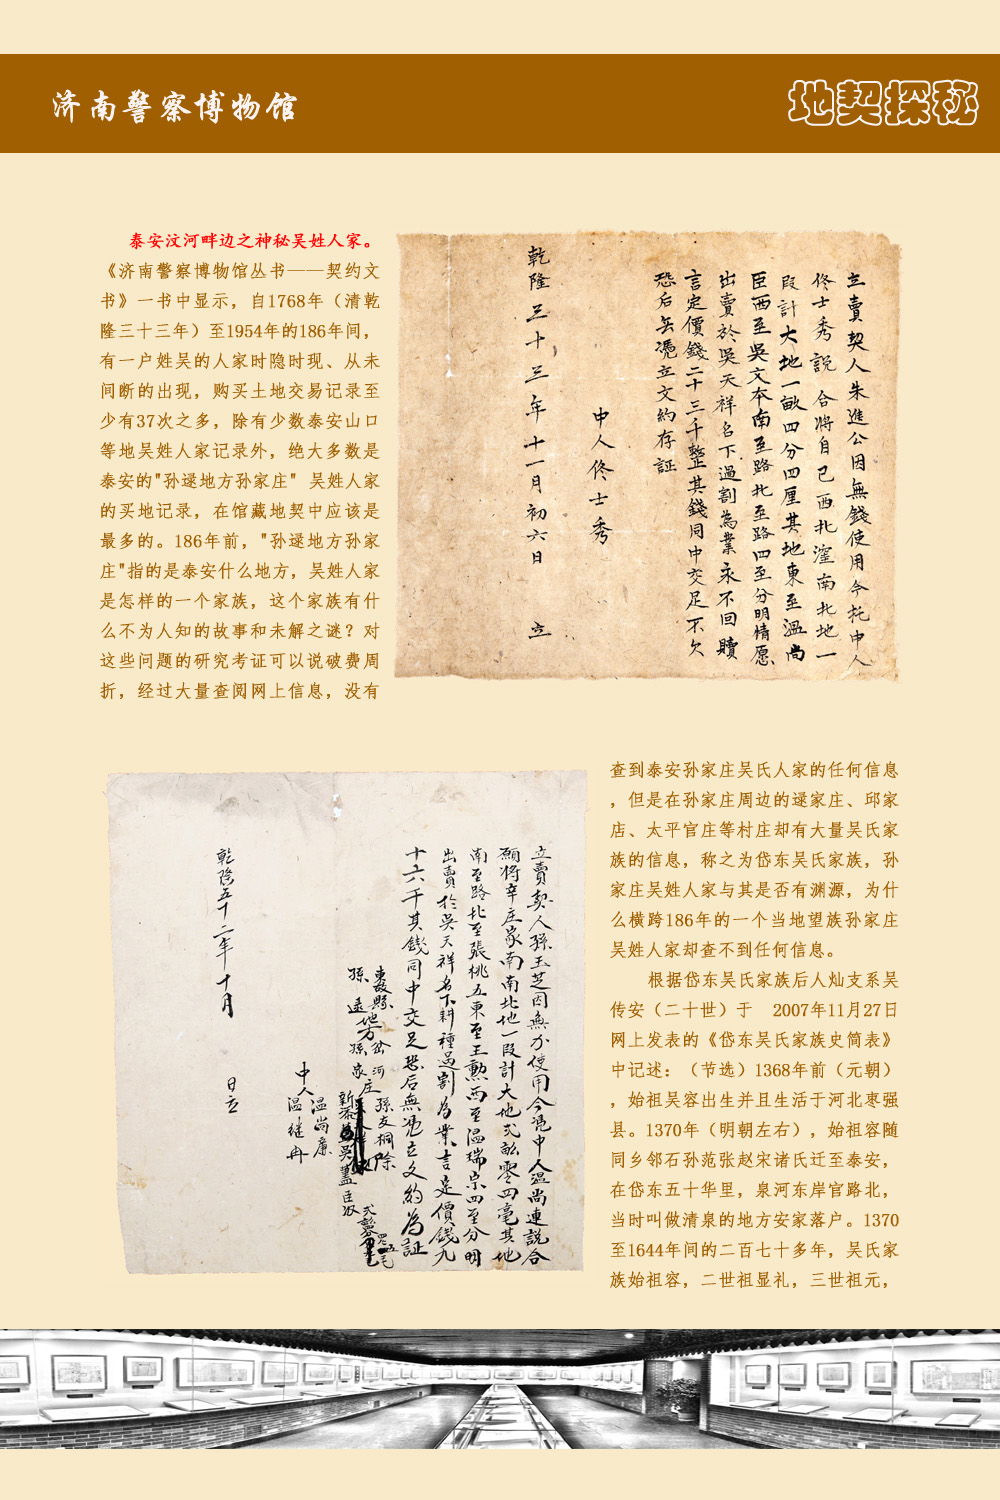 济南警察博物馆
地契探秘
泰安汶河畔边之神秘吴姓人家。
《济南警察博物馆丛书——契约文
书》一书中显示，自1768年（清乾
隆三十三年）至1954年的186年间，
有一户姓吴的人家时隐时现、从未
间断的出现，购买土地交易记录至
少有37次之多，除有少数泰安山口
等地吴姓人家记录外，绝大多数是
泰安的"孙逯地方孙家庄" 吴姓人家
的买地记录，在馆藏地契中应该是
最多的。186年前，"孙逯地方孙家
庄"指的是泰安什么地方，吴姓人家
是怎样的一个家族，这个家族有什
么不为人知的故事和未解之谜？对
这些问题的研究考证可以说破费周
折，经过大量查阅网上信息，没有
立賣契人朱進公因無錢使用今托中人
佟士秀說合將自己西北漥南北地一
段計大地一畝四分四厘其地東至溫尚
臣西至吳文夲南至路北至路四至分明情愿
出賣於吳天祥名下過割為業永不回贖
言定價錢二十三千整其錢同中交足不欠
恐后無憑立文約存証
中人佟士秀
乾隆三十三年十一月初六日 立
立賣契人孫玉芝因無力使用今憑中人溫尚連說合
願將辛庄家南南北地一段計大地弍畝零四毫其地
南至路北至張桃五東至王勲西至溫瑞宗四至分明
出賣於吳天祥名下耕種過割為業言定價錢九
十六千其錢同中交足恐后無憑立文約為証
東故縣地方岔河孫友桐除
孫逯地方孫家庄
中人溫尚廉
溫継冉
乾隆五十二年十月 日立
查到泰安孙家庄吴氏人家的任何信息
，但是在孙家庄周边的逯家庄、邱家
店、太平官庄等村庄却有大量吴氏家
族的信息，称之为岱东吴氏家族，孙
家庄吴姓人家与其是否有渊源，为什
么横跨186年的一个当地望族孙家庄
吴姓人家却查不到任何信息。
根据岱东吴氏家族后人灿支系吴
传安（二十世）于 2007年11月27日
网上发表的《岱东吴氏家族史简表》
中记述：（节选）1368年前（元朝）
，始祖吴容出生并且生活于河北枣强
县。1370年（明朝左右），始祖容随
同乡邻石孙范张赵宋诸氏迁至泰安，
在岱东五十华里，泉河东岸官路北，
当时叫做清泉的地方安家落户。1370
至1644年间的二百七十多年，吴氏家
族始祖容，二世祖显礼，三世祖元，